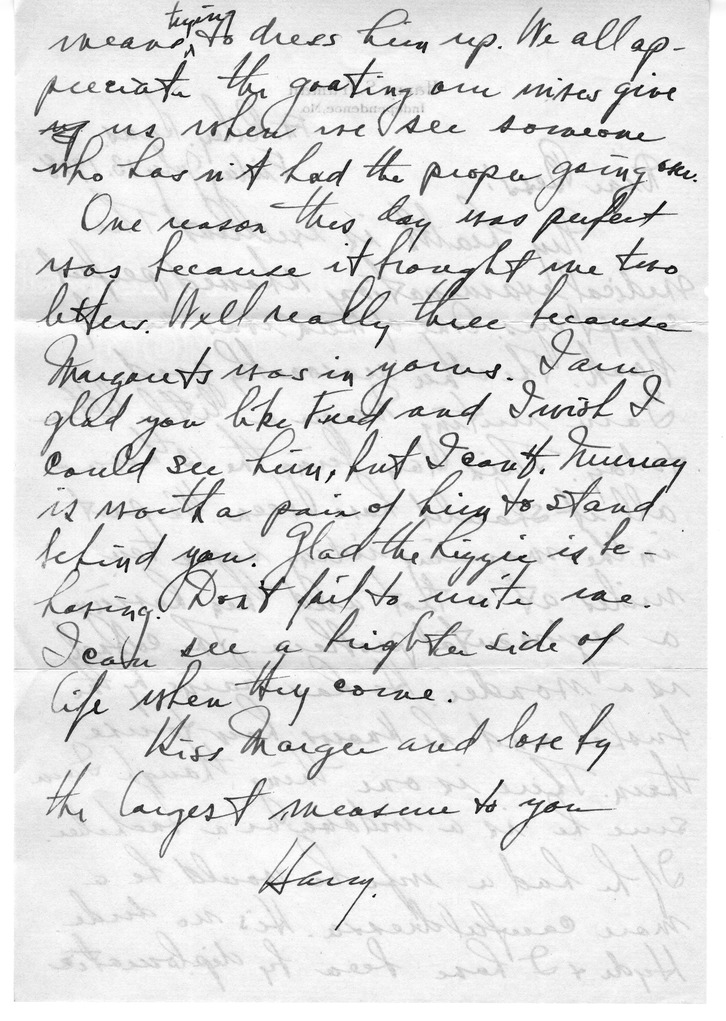 means trying to dress him up. We all ap-
preciate the goating our wives give
us when we see someone
who hasn't had the proper going over.
One reason this day was perfect
was because it brought me two
letters. Well really three because
Margarets was in yours. I am
glad you like Fred and I wish I
could see him, but I can't. Murray
is worth a pair of him to stand
behind you. Glad the lizzie is be-
having. Don't fail to write me.
I can see a brighter side of
life when they come.
Kiss Margie and love by
the largest measure to you
Harry.